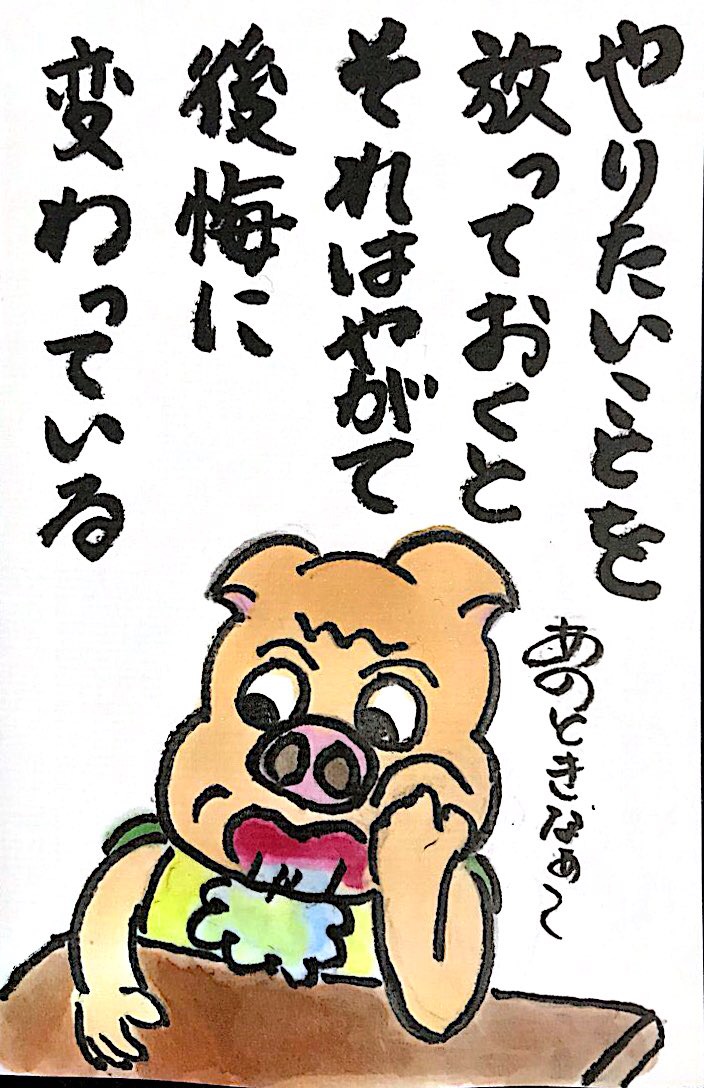 やりたいことを
放っておくと
それはやがて
後悔に
変わっている
あのときなぁ〜